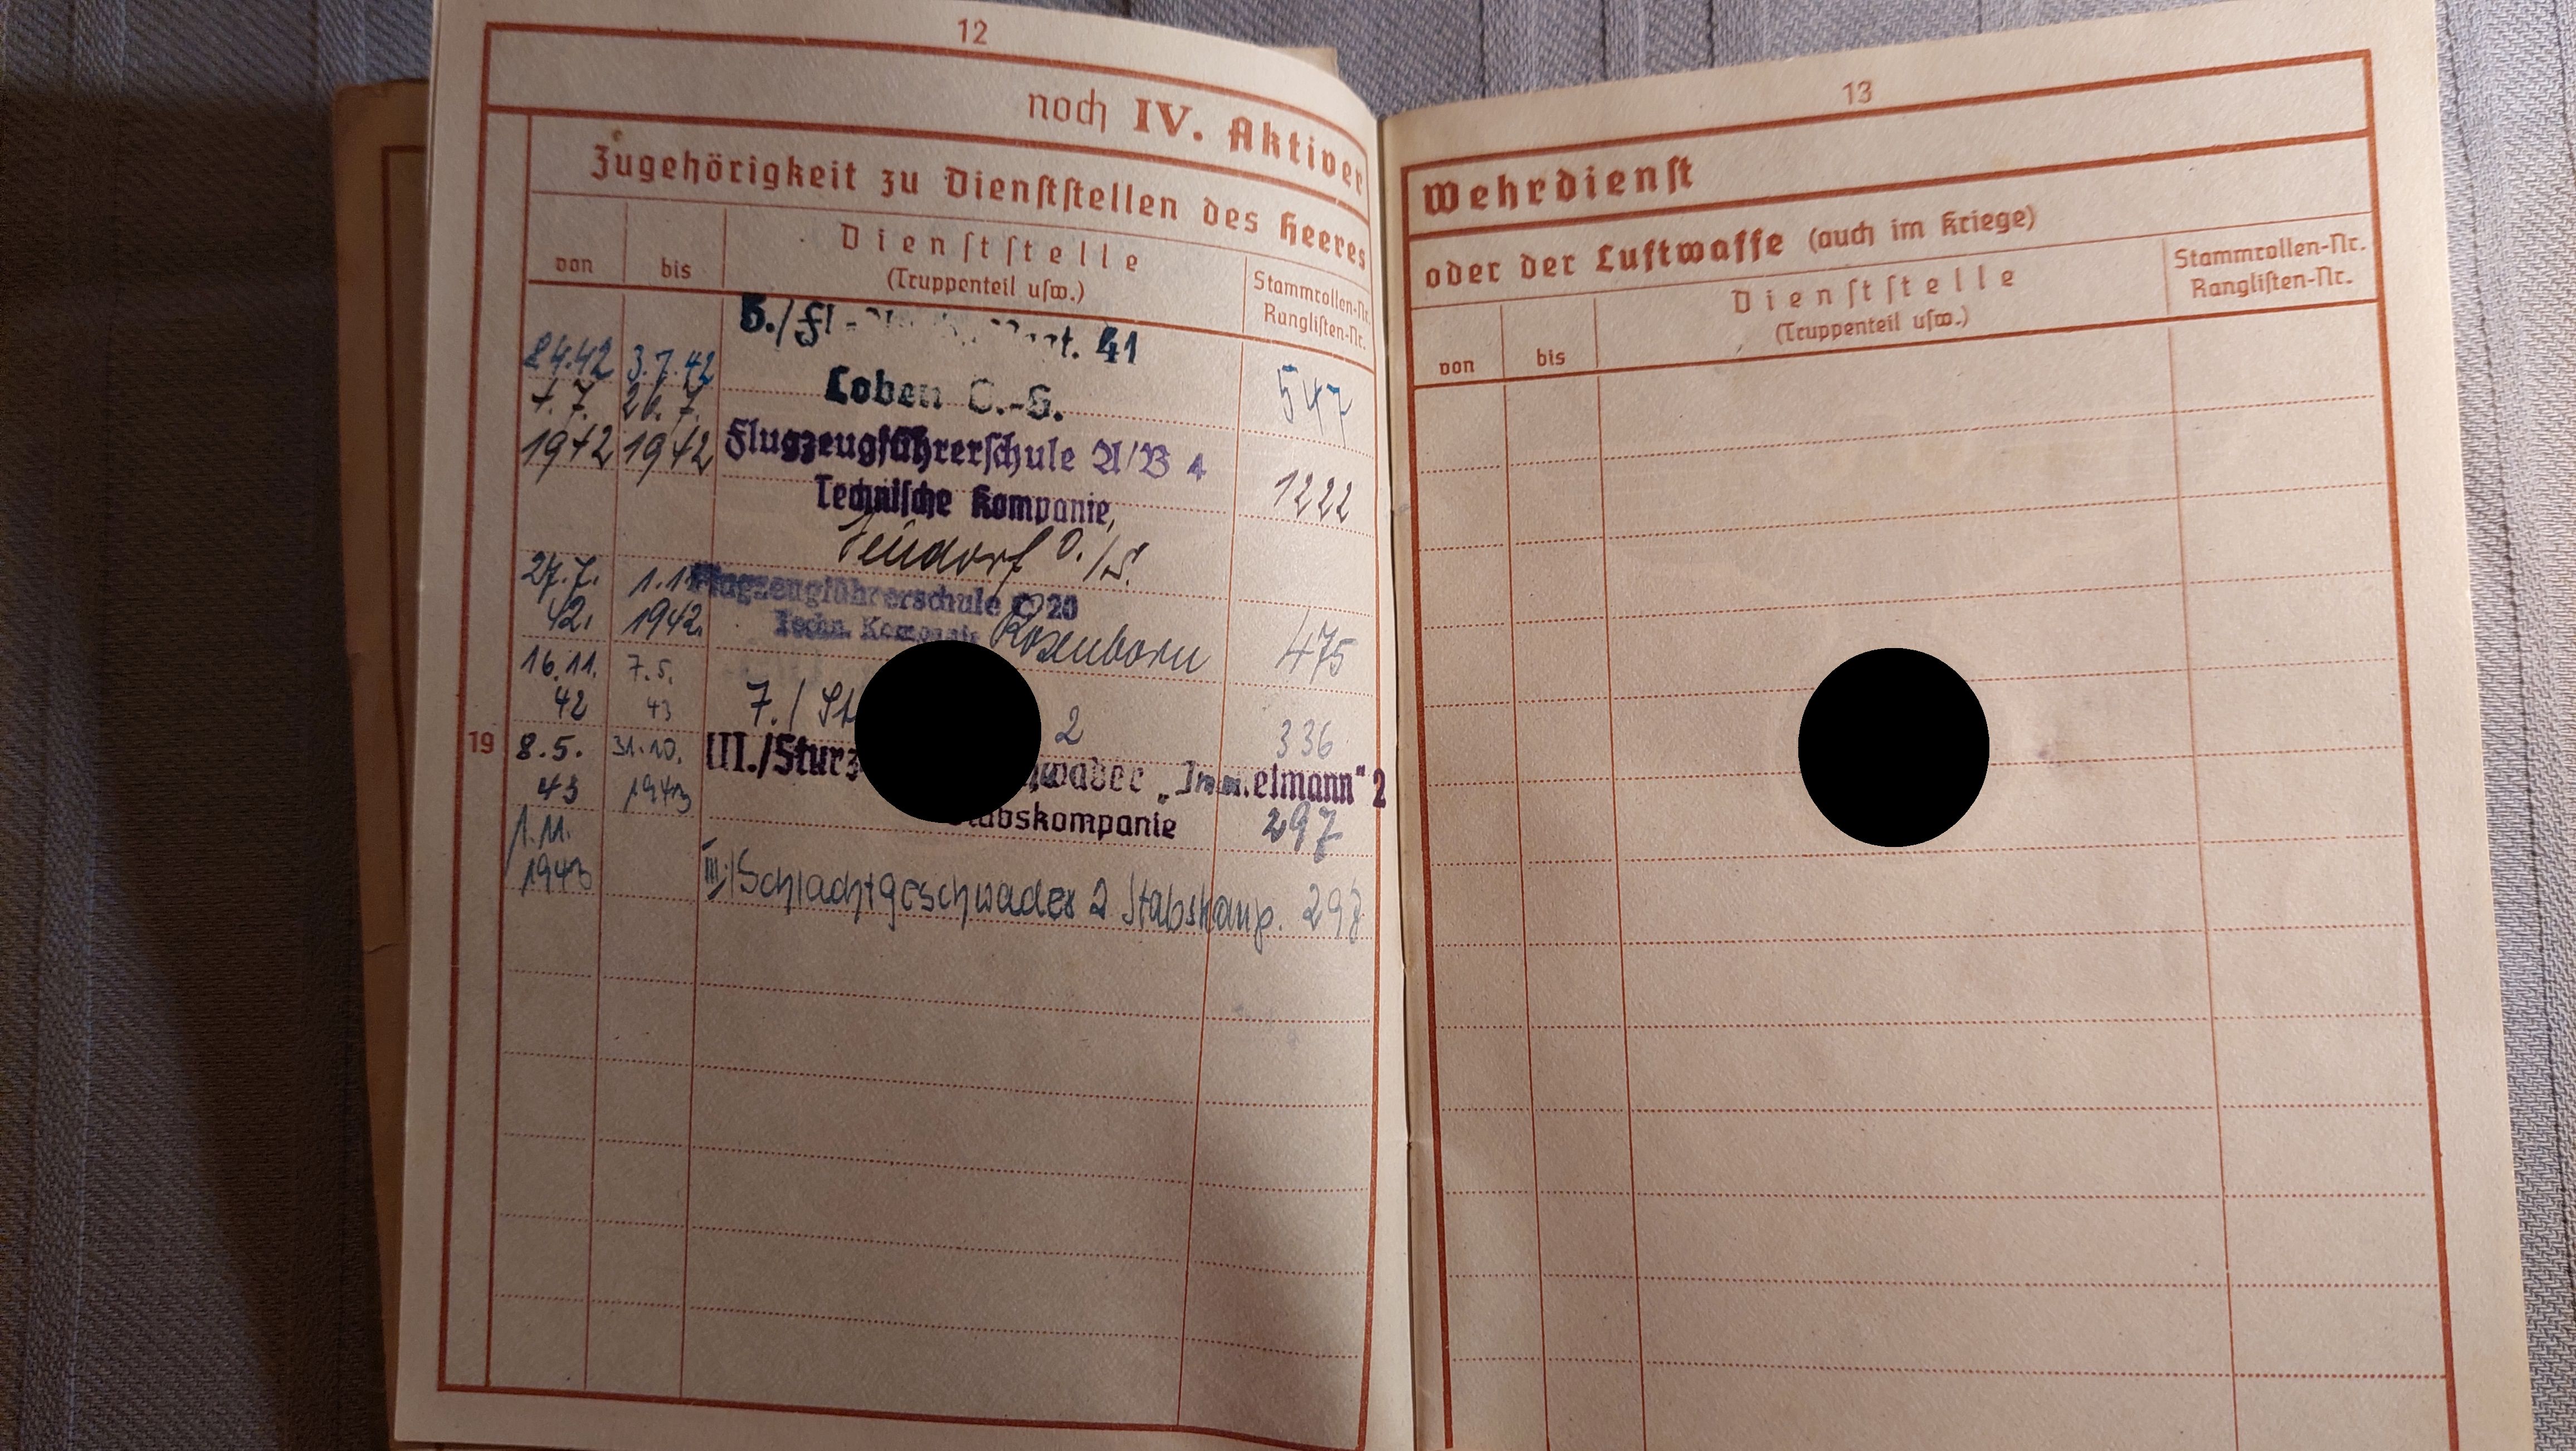 12
noch IV. Aktiver
Zugehörigkeit zu Dienststellen des Heeres
von
bis
Dienststelle
(Truppenteil usw.)
Stammrollen-Nr.
Ranglisten-Nr.
3.7.42
41
547
Loben O.-S.
7.7. 26.7.
1942 1942
Flugzeugführerschule A/B 4
Technische Kompanie,
1222
Neudorf O./S.
27.7.
42. 1942.
Flugzeugführerschule C 20
Techn. Kompanie Rosenborn
475
16.11. 7.5.
42 43
7./ St 2
336
19
8.5. 31.10.
43 1943
III./Sturz
"Immelmann" 2
Stabskompanie
297
1.11.
1943
III./Schlachtgeschwader 2 Stabskomp. 297
13
Wehrdienst
oder der Luftwaffe (auch im Kriege)
von
bis
Dienststelle
(Truppenteil usw.)
Stammrollen-Nr.
Ranglisten-Nr.